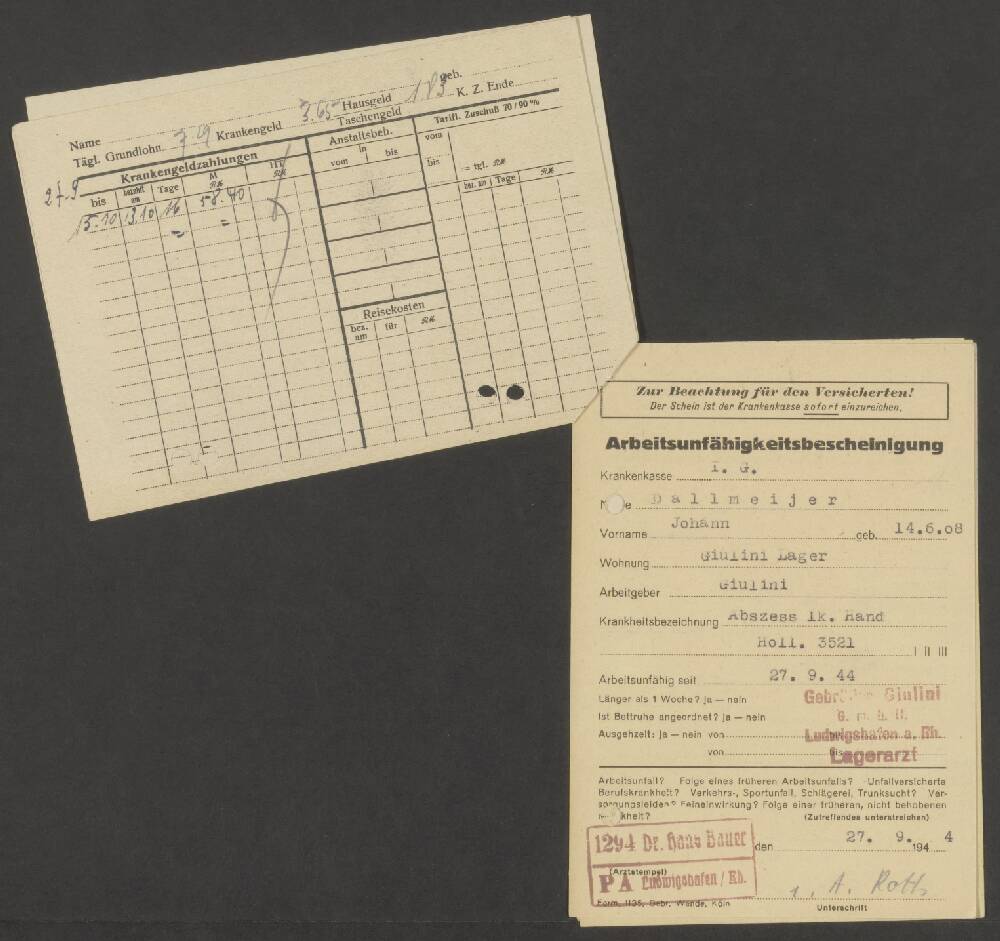 Name geb.
Tägl. Grundlohn 7.9 Krankengeld 3.65 Hausgeld 1.83 K. Z. Ende
Taschengeld
Krankengeldzahlungen
Anstaltsbeh.
Tarifl. Zuschuß 70/90 %
27.9
bis bezahlt am Tage M RM HT RM
in
vom bis
vom
bis = tgl. RM
bez. am Tage RM
15.10 13.10 16 58.40
= =
Reisekosten
bez. am für RM
Zur Beachtung für den Versicherten!
Der Schein ist der Krankenkasse sofort einzureichen.
Arbeitsunfähigkeitsbescheinigung
Krankenkasse I. G.
Dallmeijer
Vorname Johann geb. 14.6.08
Wohnung Giulini Lager
Arbeitgeber Giulini
Krankheitsbezeichnung Abszess lk. Hand
Holl. 3521
I II III
Arbeitsunfähig seit 27. 9. 44
Länger als 1 Woche? ja — nein
Gebrüder Giulini
Ist Bettruhe angeordnet? ja — nein
G. m. b. H.
Ausgehzeit: ja — nein von bis
Ludwigshafen a. Rh.
von bis
Lagerarzt
Arbeitsunfall? Folge eines früheren Arbeitsunfalls? Unfallversicherte
Berufskrankheit? Verkehrs-, Sportunfall, Schlägerei, Trunksucht? Ver-
sorgungsleiden? Feindeinwirkung? Folge einer früheren, nicht behobenen
(Zutreffendes unterstreichen)
1294 Dr. Hans Bauer
den 27. 9. 194 4
(Arztstempel)
PA Ludwigshafen / Rh.
A. Roth
Form. 1135, Gebr. Wande, Köln
Unterschrift